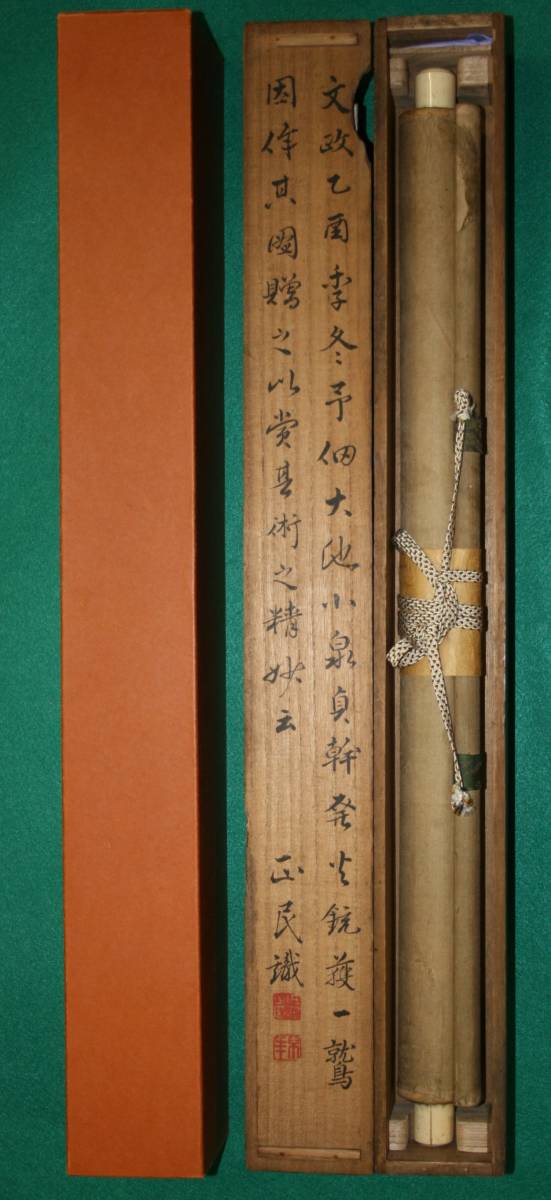 文政乙酉季冬予佃大池小泉貞幹発火銃獲一鷲
因作其図贈之以賞其術之精妙云
正民識